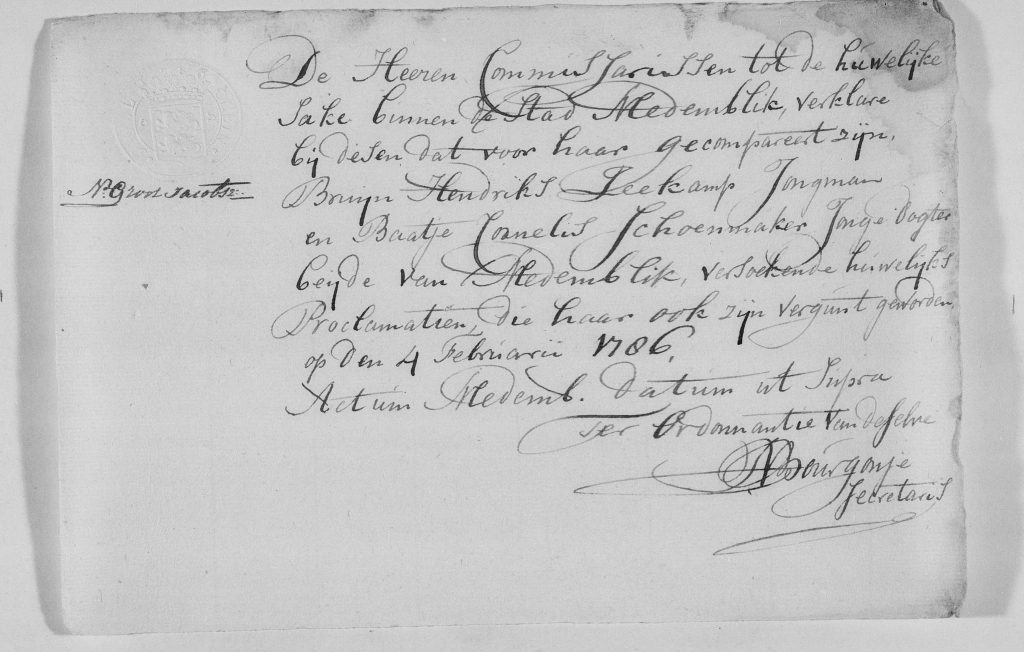 De Heeren Commissarissen tot de huwelijke
sake binnen de Stad Medemblik, verklare
bij desen dat voor haar gecompareert zijn,
Nd. Groot Jacobsz.
Bruijn Hendriks Leekamp Jongman
en Baatje Cornelis Schoenmaker Jonge Dogter
beijde van Medemblik, versoekende huwelijks
Proclamatien, die haar ook zijn vergunt geworden,
op den 4 Februarii 1786.
Actum Medemb. datum ut Supra
Ter Ordonnantie van deselve
Bourgonje
Secretaris